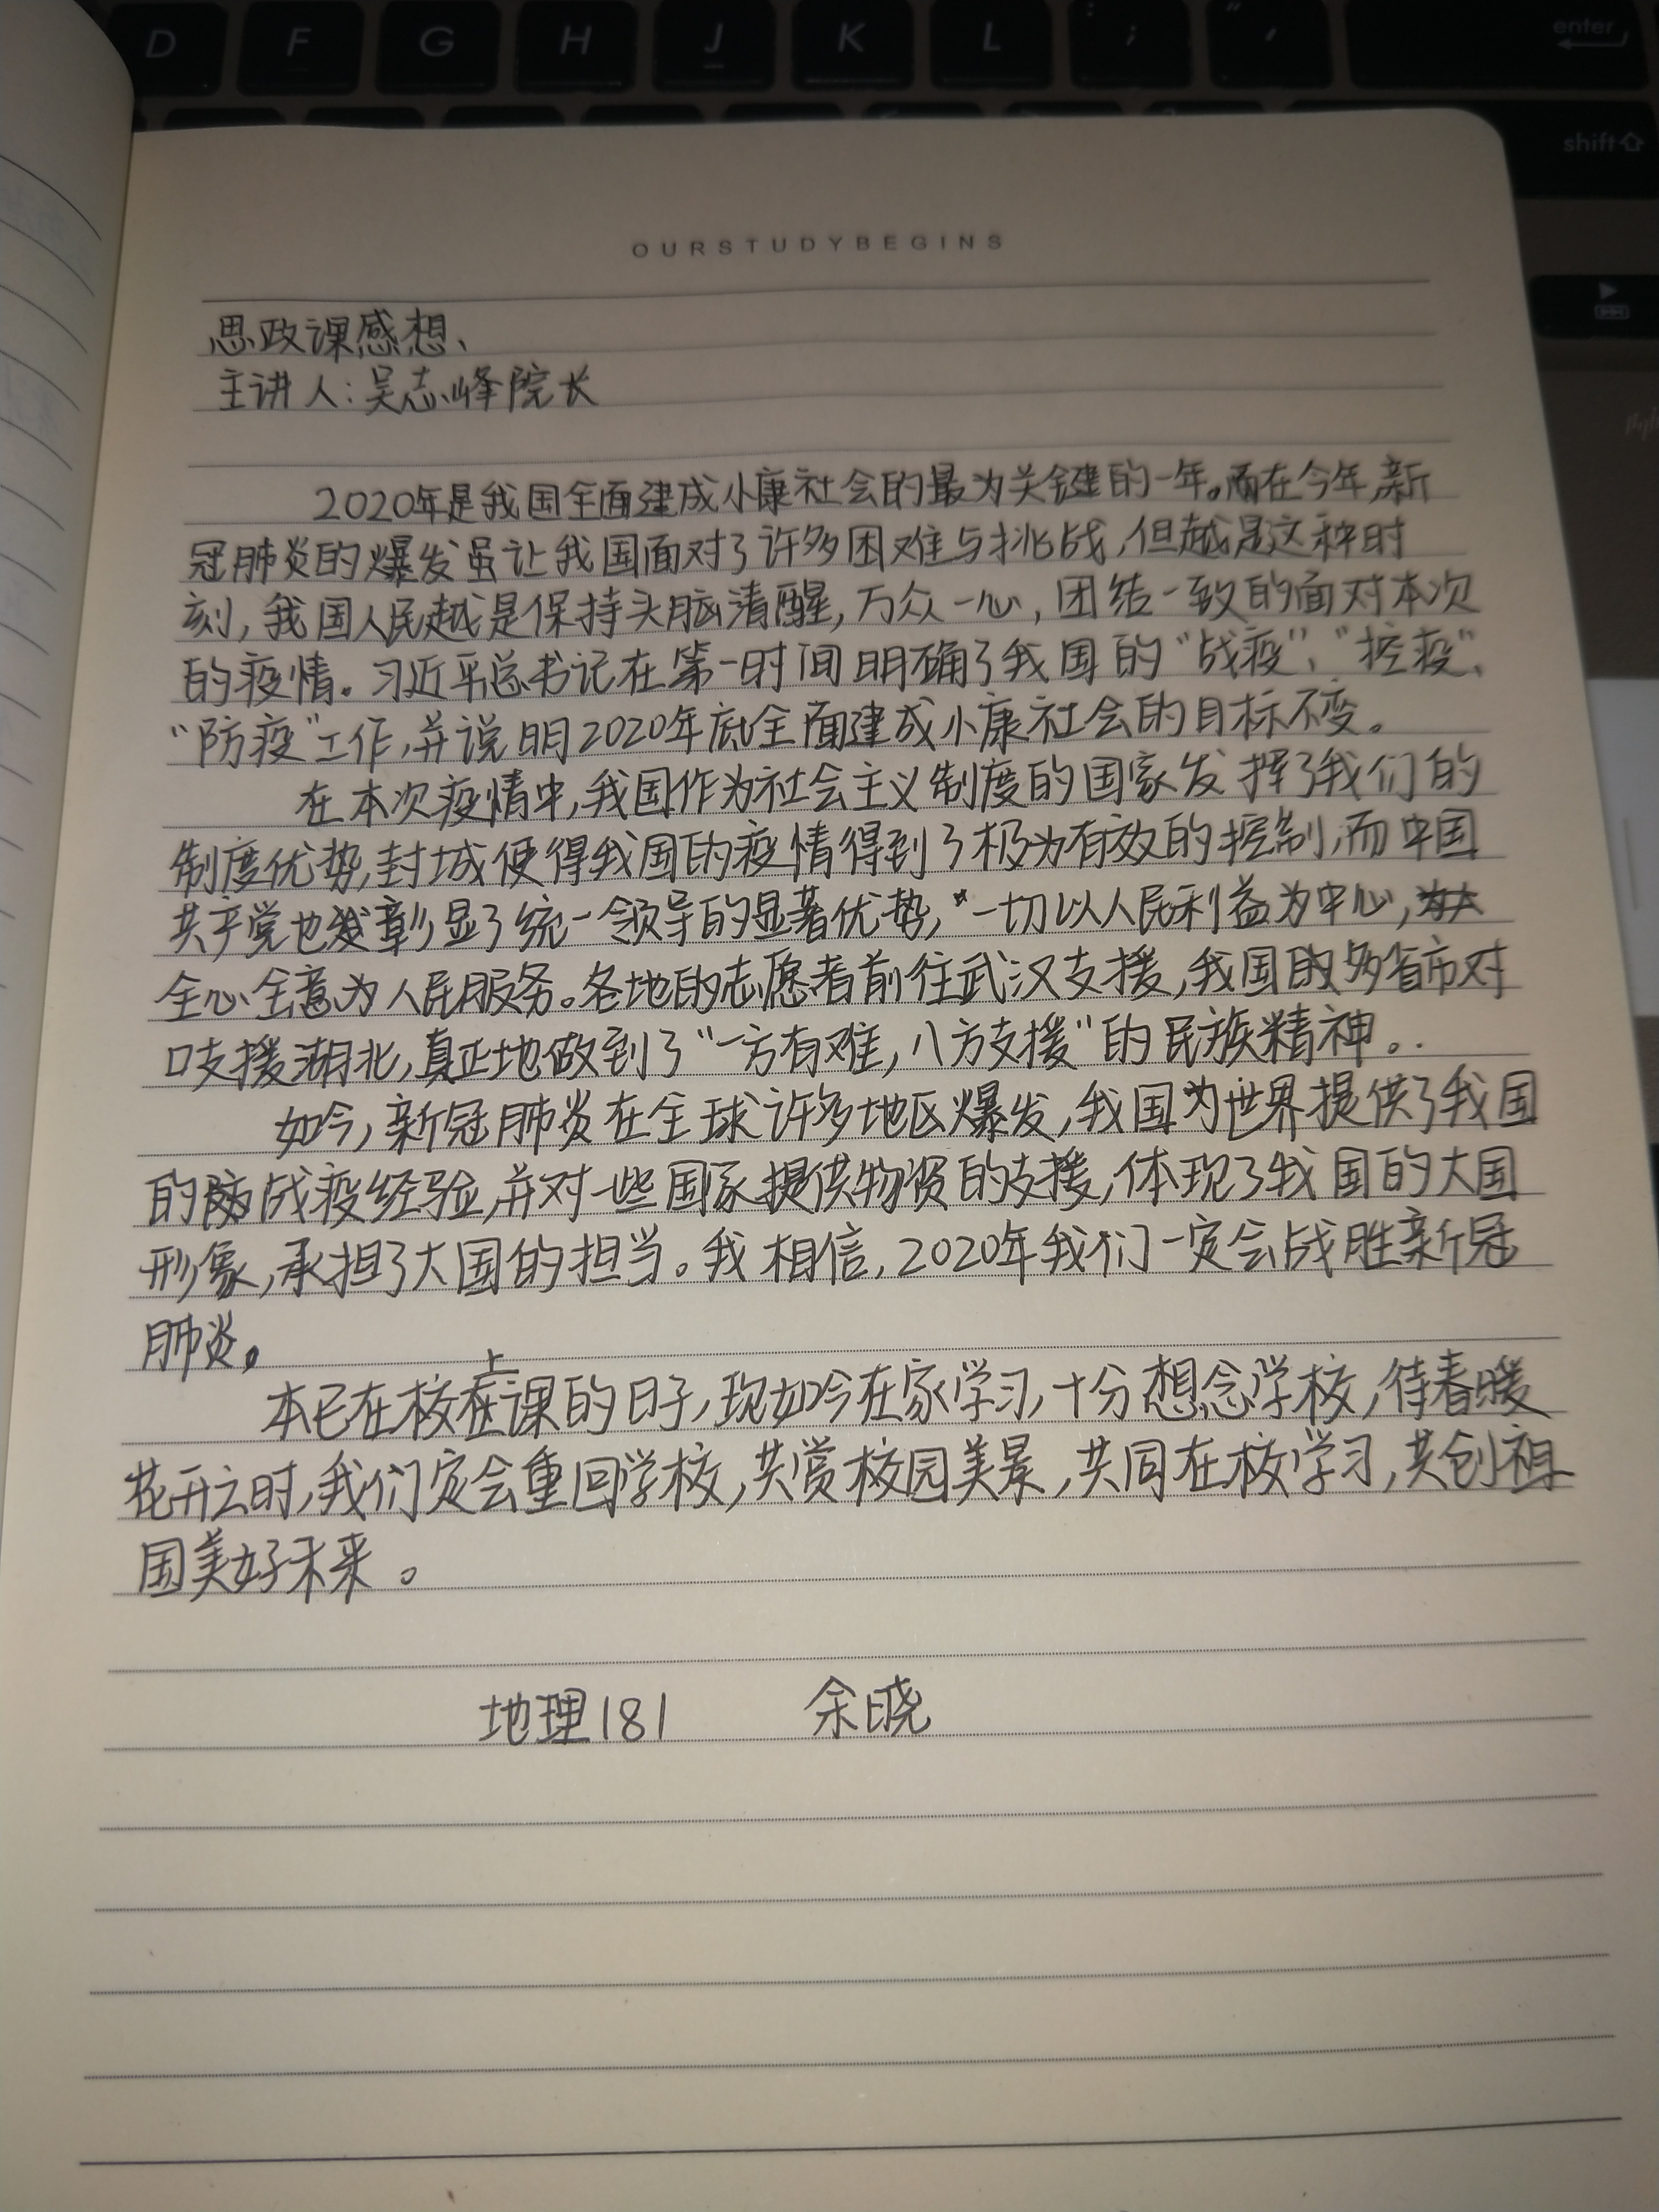 D F G H J K L ; : " ' enter
shift
OURSTUDYBEGINS
思政课感想、
主讲人:吴志峰院长
2020年是我国全面建成小康社会的最为关键的一年。而在今年,新
冠肺炎的爆发虽让我国面对了许多困难与挑战,但越是这种时
刻,我国人民越是保持头脑清醒,万众一心,团结一致的面对本次
的疫情。习近平总书记在第一时间明确了我国的“战疫”、“控疫”、
“防疫”工作,并说明2020年底全面建成小康社会的目标不变。
在本次疫情中,我国作为社会主义制度的国家发挥了我们的
制度优势,封城便得我国的疫情得到了极为有效的控制,而中国
共产党也彰显了统一领导的显著优势,“一切以人民利益为中心,
全心全意为人民服务。各地的志愿者前往武汉支援,我国的多省市对
口支援湖北,真正地做到了“一方有难,八方支援”的民族精神。.
如今,新冠肺炎在全球许多地区爆发,我国为世界提供了我国
的战疫经验,并对一些国家提供物资的支援,体现了我国的大国
形象,承担了大国的担当。我相信,2020年我们一定会战胜新冠
肺炎。
本已在校上课的日子,现如今在家学习,十分想念学校,待春暖
花开之时,我们定会重回学校,共赏校园美景,共同在校学习,共创祖
国美好未来。
地理181 余晓